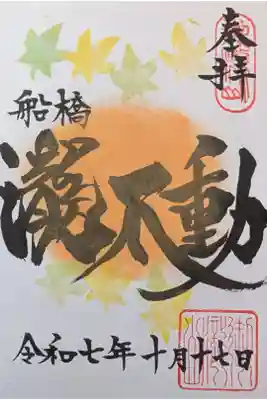 奉拝
船橋
瀧不動
令和七年十月十七日